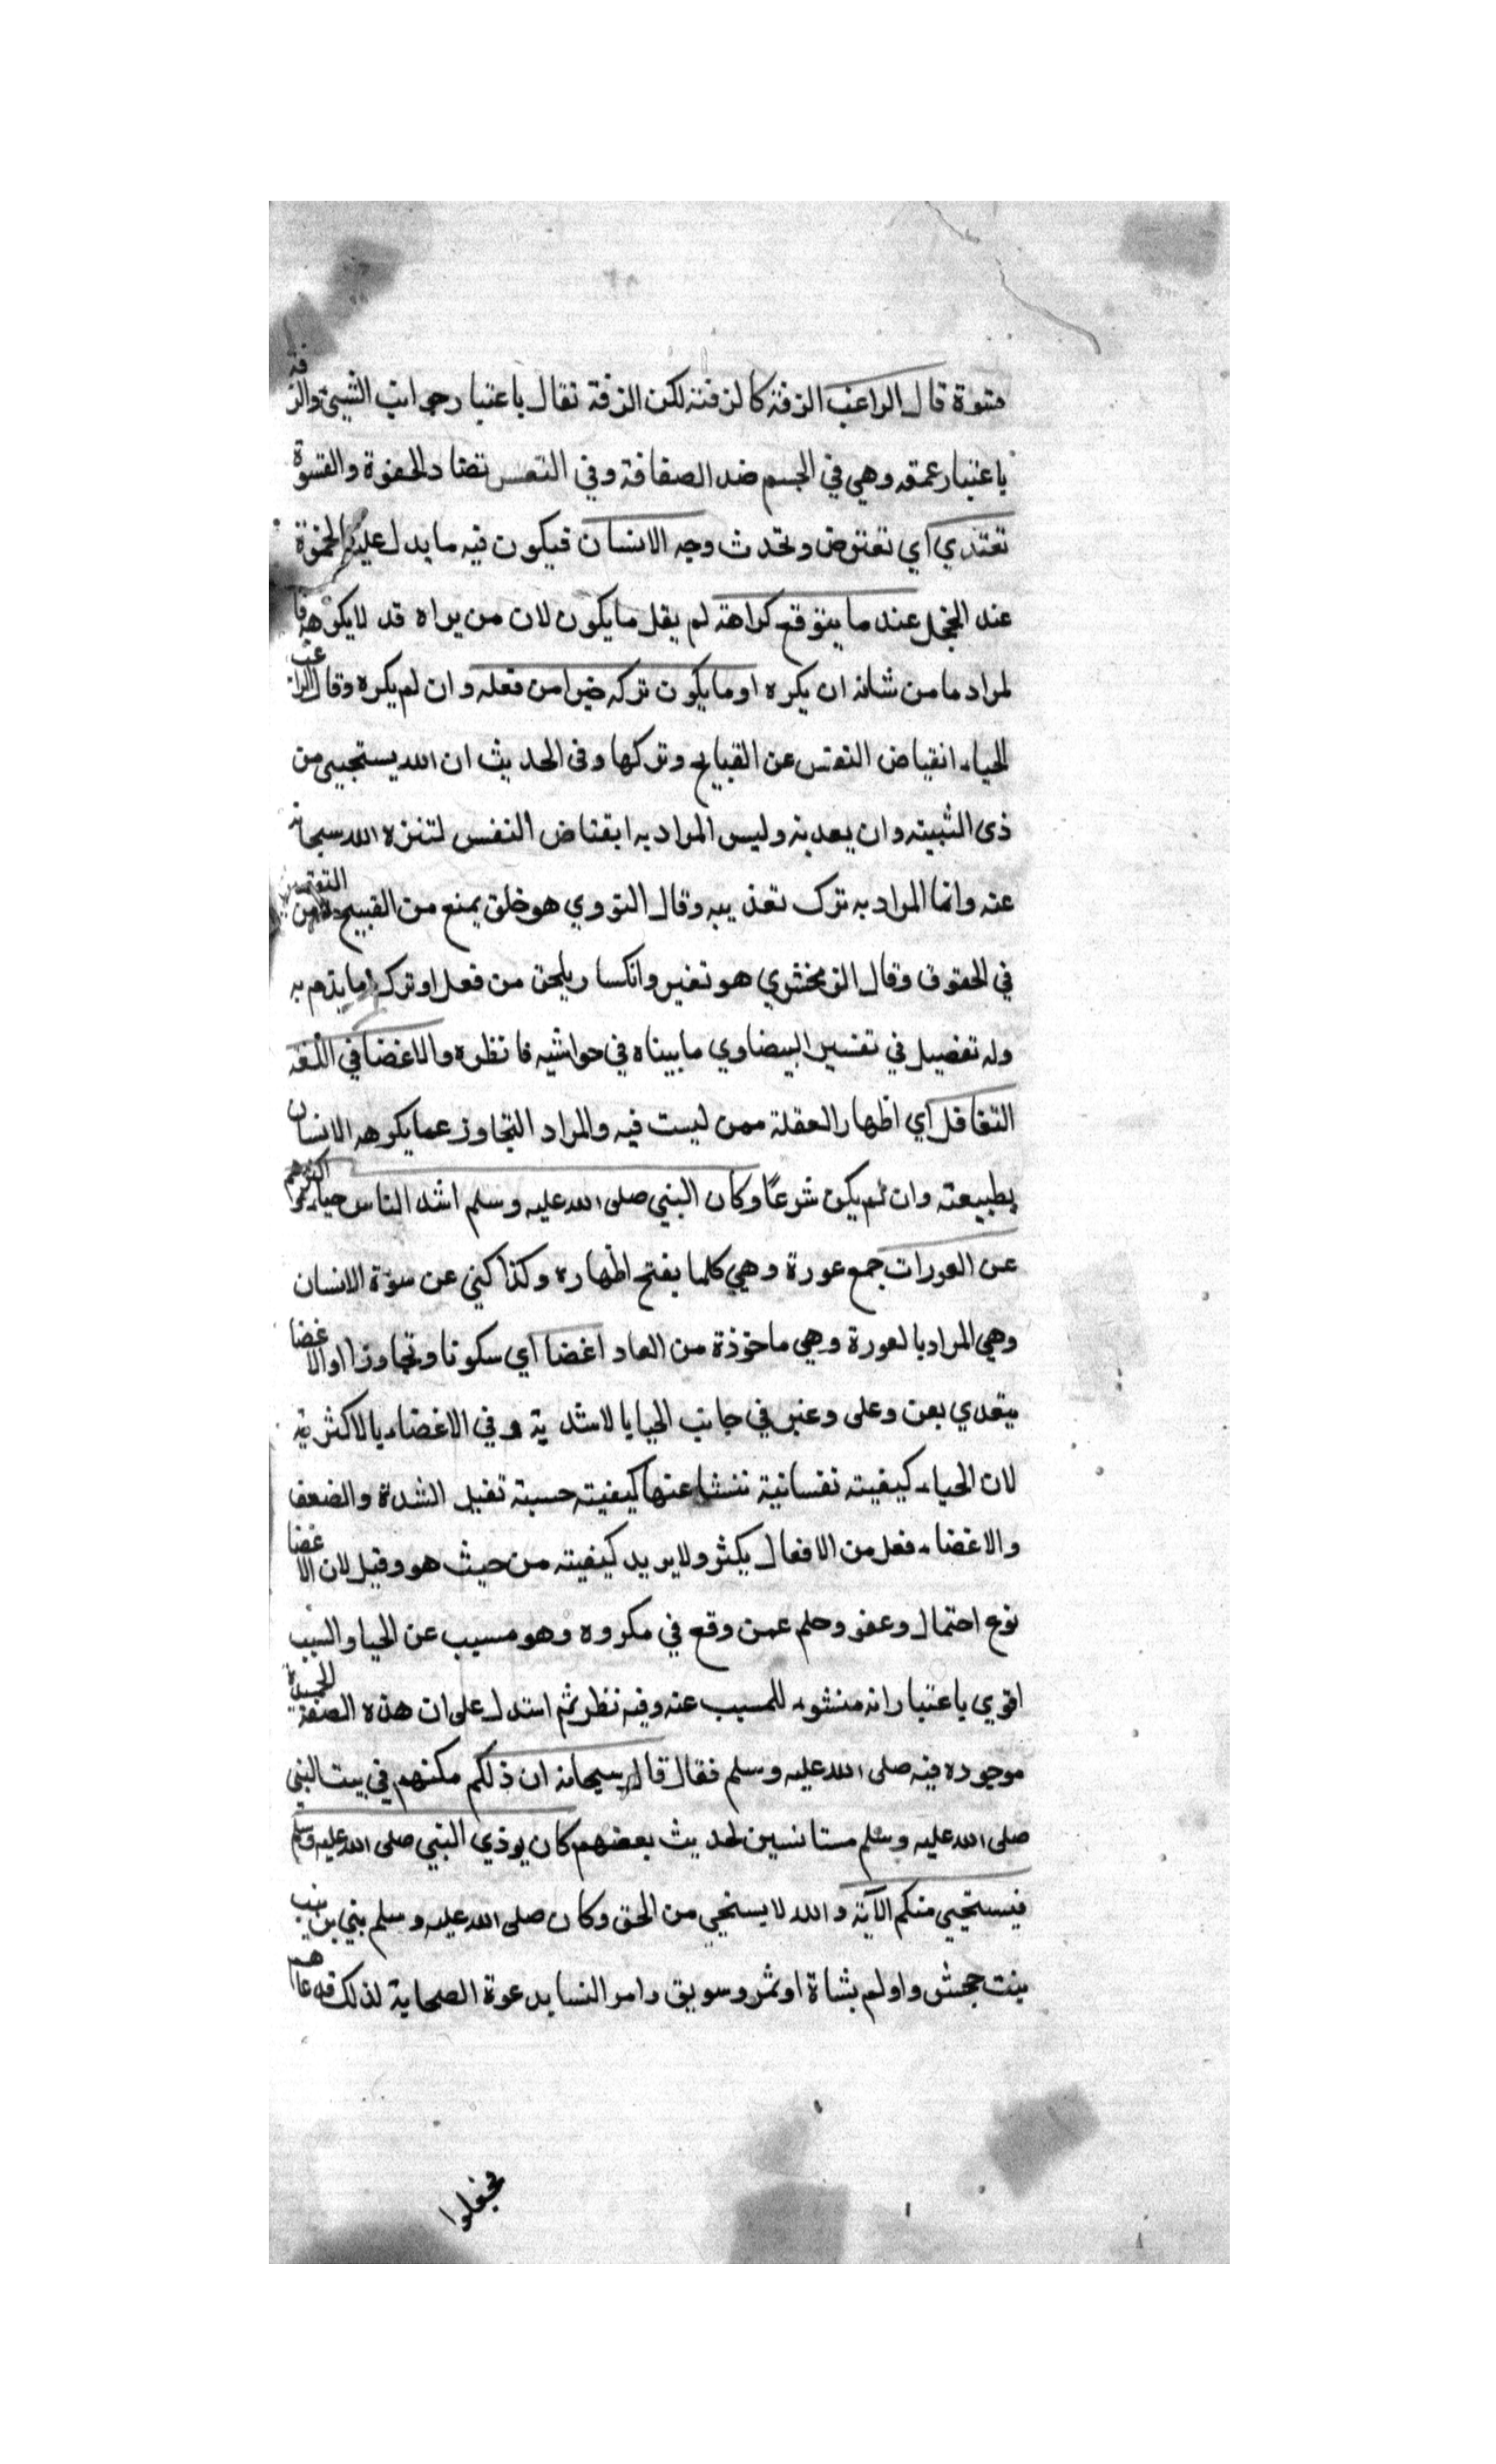 متوة قال الراغب الزفة كالزفنة لكن الزفة تقال باعتبار جوانب الشيئ والزفة
باعتبار عمقه وهي في الجسم ضد الصفاقة وفي النفس تضاد الجفوة والقسوة
تعتري اي تعترض وتحدث وجه الانسان فيكون فيه ما يدل عليه كالحمرة
عند الخجل عند ما يتوقع كراهته لم يقل ما يكون لان من يراه قد لا يكرهه فا
لمراد ما من شانه ان يكره او ما يكون تركه خيرا من فعله وان لم يكره وقال الراغب
الحياء انقباض النفس عن القبايح وتركها وفي الحديث ان الله يستحيي من
ذى الشيبته وان يعدبه وليس المراد به ابقتاض النفس لتنزه الله سبحانه
عنه وانما المراد به ترك تعذيبه وقال النووي هو خلق يمنع من القبيح ومن التقصير
في الحقوق وقال الزمخشري هو تغير وانكسار يلحق من فعل او ترك ما يذم به
وله تفصيل في تفسير البيضاوي ما بيناه في حواشيه فانظره والاغضا في اللغة
التغافل اي اظهار الغفلة ممن ليست فيه والمراد التجاوز عما يكرهه الانسان
بطبيعته وان لم يكن شرعًا وكان النبي صلى الله عليه وسلم اشد الناس حياء واكثرهم
عن العورات جمع عورة وهي كلما يفتح اظهاره وكذا كني عن سوة الانسان
وهي المراد بالعورة وهي ماخوذة من العار اغضا اي سكوتا وتجاوزا والاغضا
يتعدي بعن وعلى وعبر في جانب الحيا بالاشدية وفي الاغضاء بالاكثرية
لان الحياء كيفيته نفسانية تنشا عنها كيفيته حسبة تقبل الشدة والضعف
والاغضاء فعل من الافعال يكثر ولا يريد كيفيته من حيث هو وقيل لان الاغضا
نوع احتمال وعفو وحلم عمن وقع في مكروه وهو مسبب عن الحيا والسبب
اقوي باعتبار انه منشوء للمسبب عنه وفيه نظر ثم استدل على ان هذه الصفة الحميدة
موجوده فيه صلى الله عليه وسلم فقال قال سبحانه ان ذلكم مكثهم في بيت النبي
صلى الله عليه وسلم مستانسين لحديث بعضهم كان يوذي النبي صلى الله عليه وسلم
فيستحيي منكم الآية والله لا يستحي من الحق وكان صلى الله عليه وسلم بني بزينب
بنت جحش واولم بشاة او تمر وسويق وامر انسا بدعوة الصحابة لذلك فدعاهم
فجعلوا